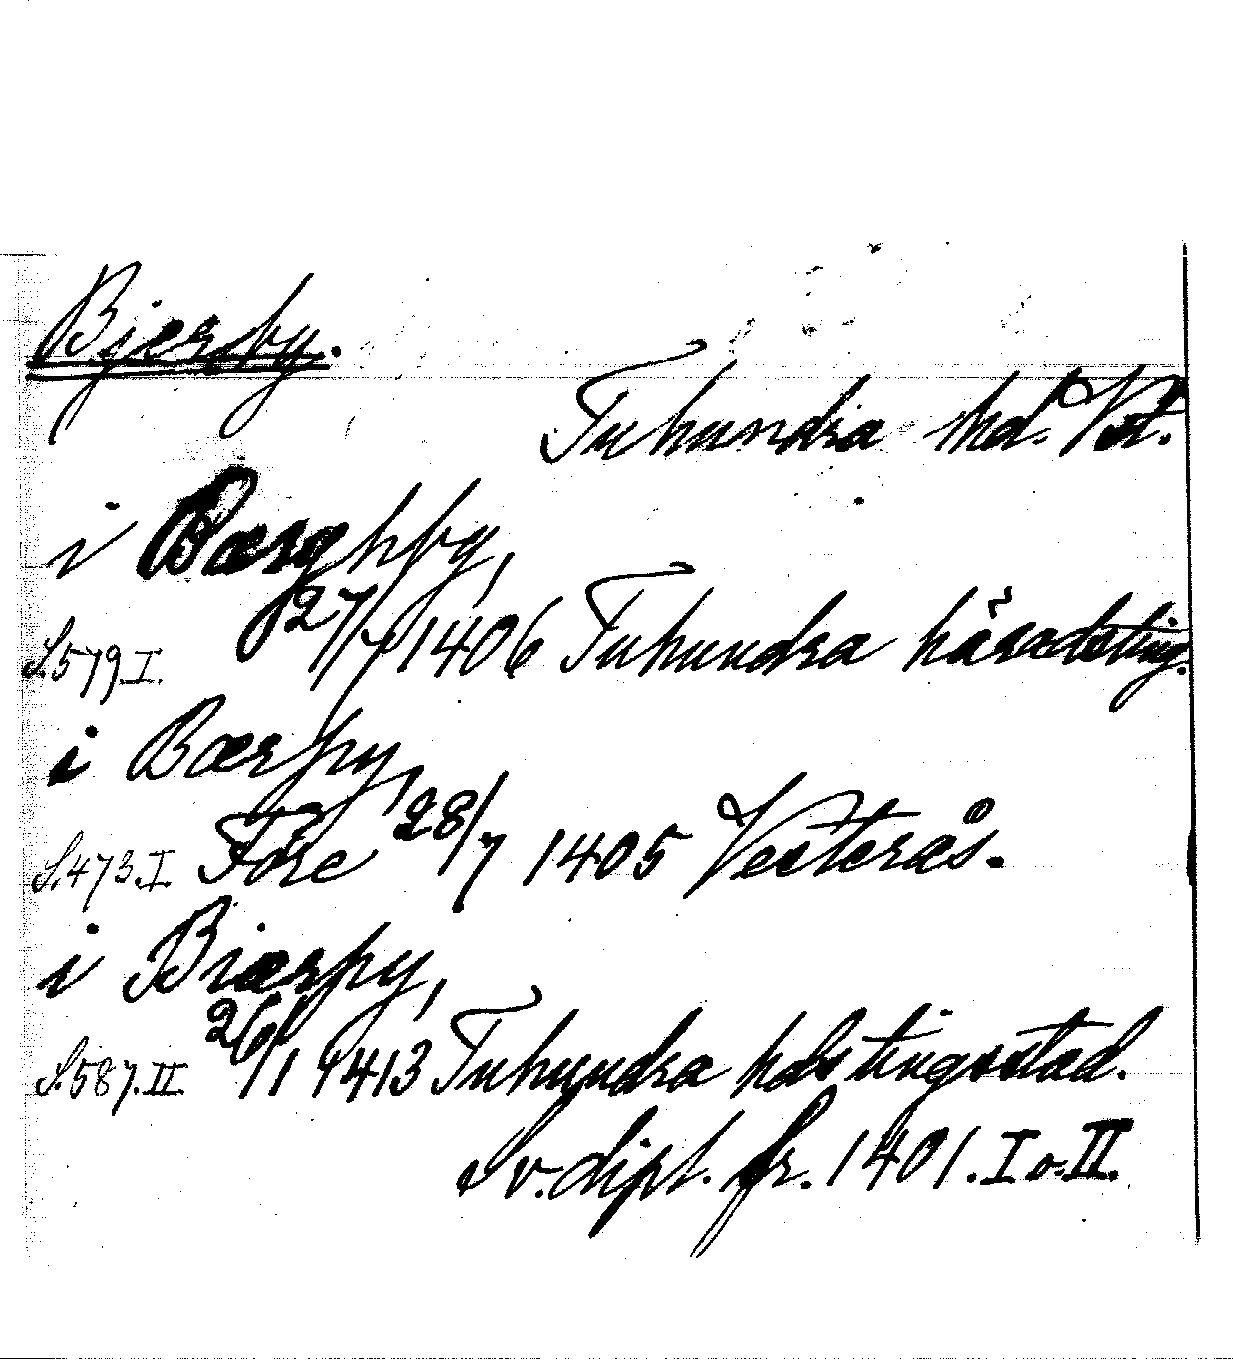 Bjerby.
Tuhundra hd. Vst.
i Bærghby,
S. 579. I. 27/7 1406 Tuhundra häradsting.
i Bærby,
S. 473. I. Före 28/7 1405 Vesterås.
i Biærby,
S. 587. II 26/1 1413 Tuhundra hds tingsstad.
Sv. dipl. fr. 1401. I o. II.